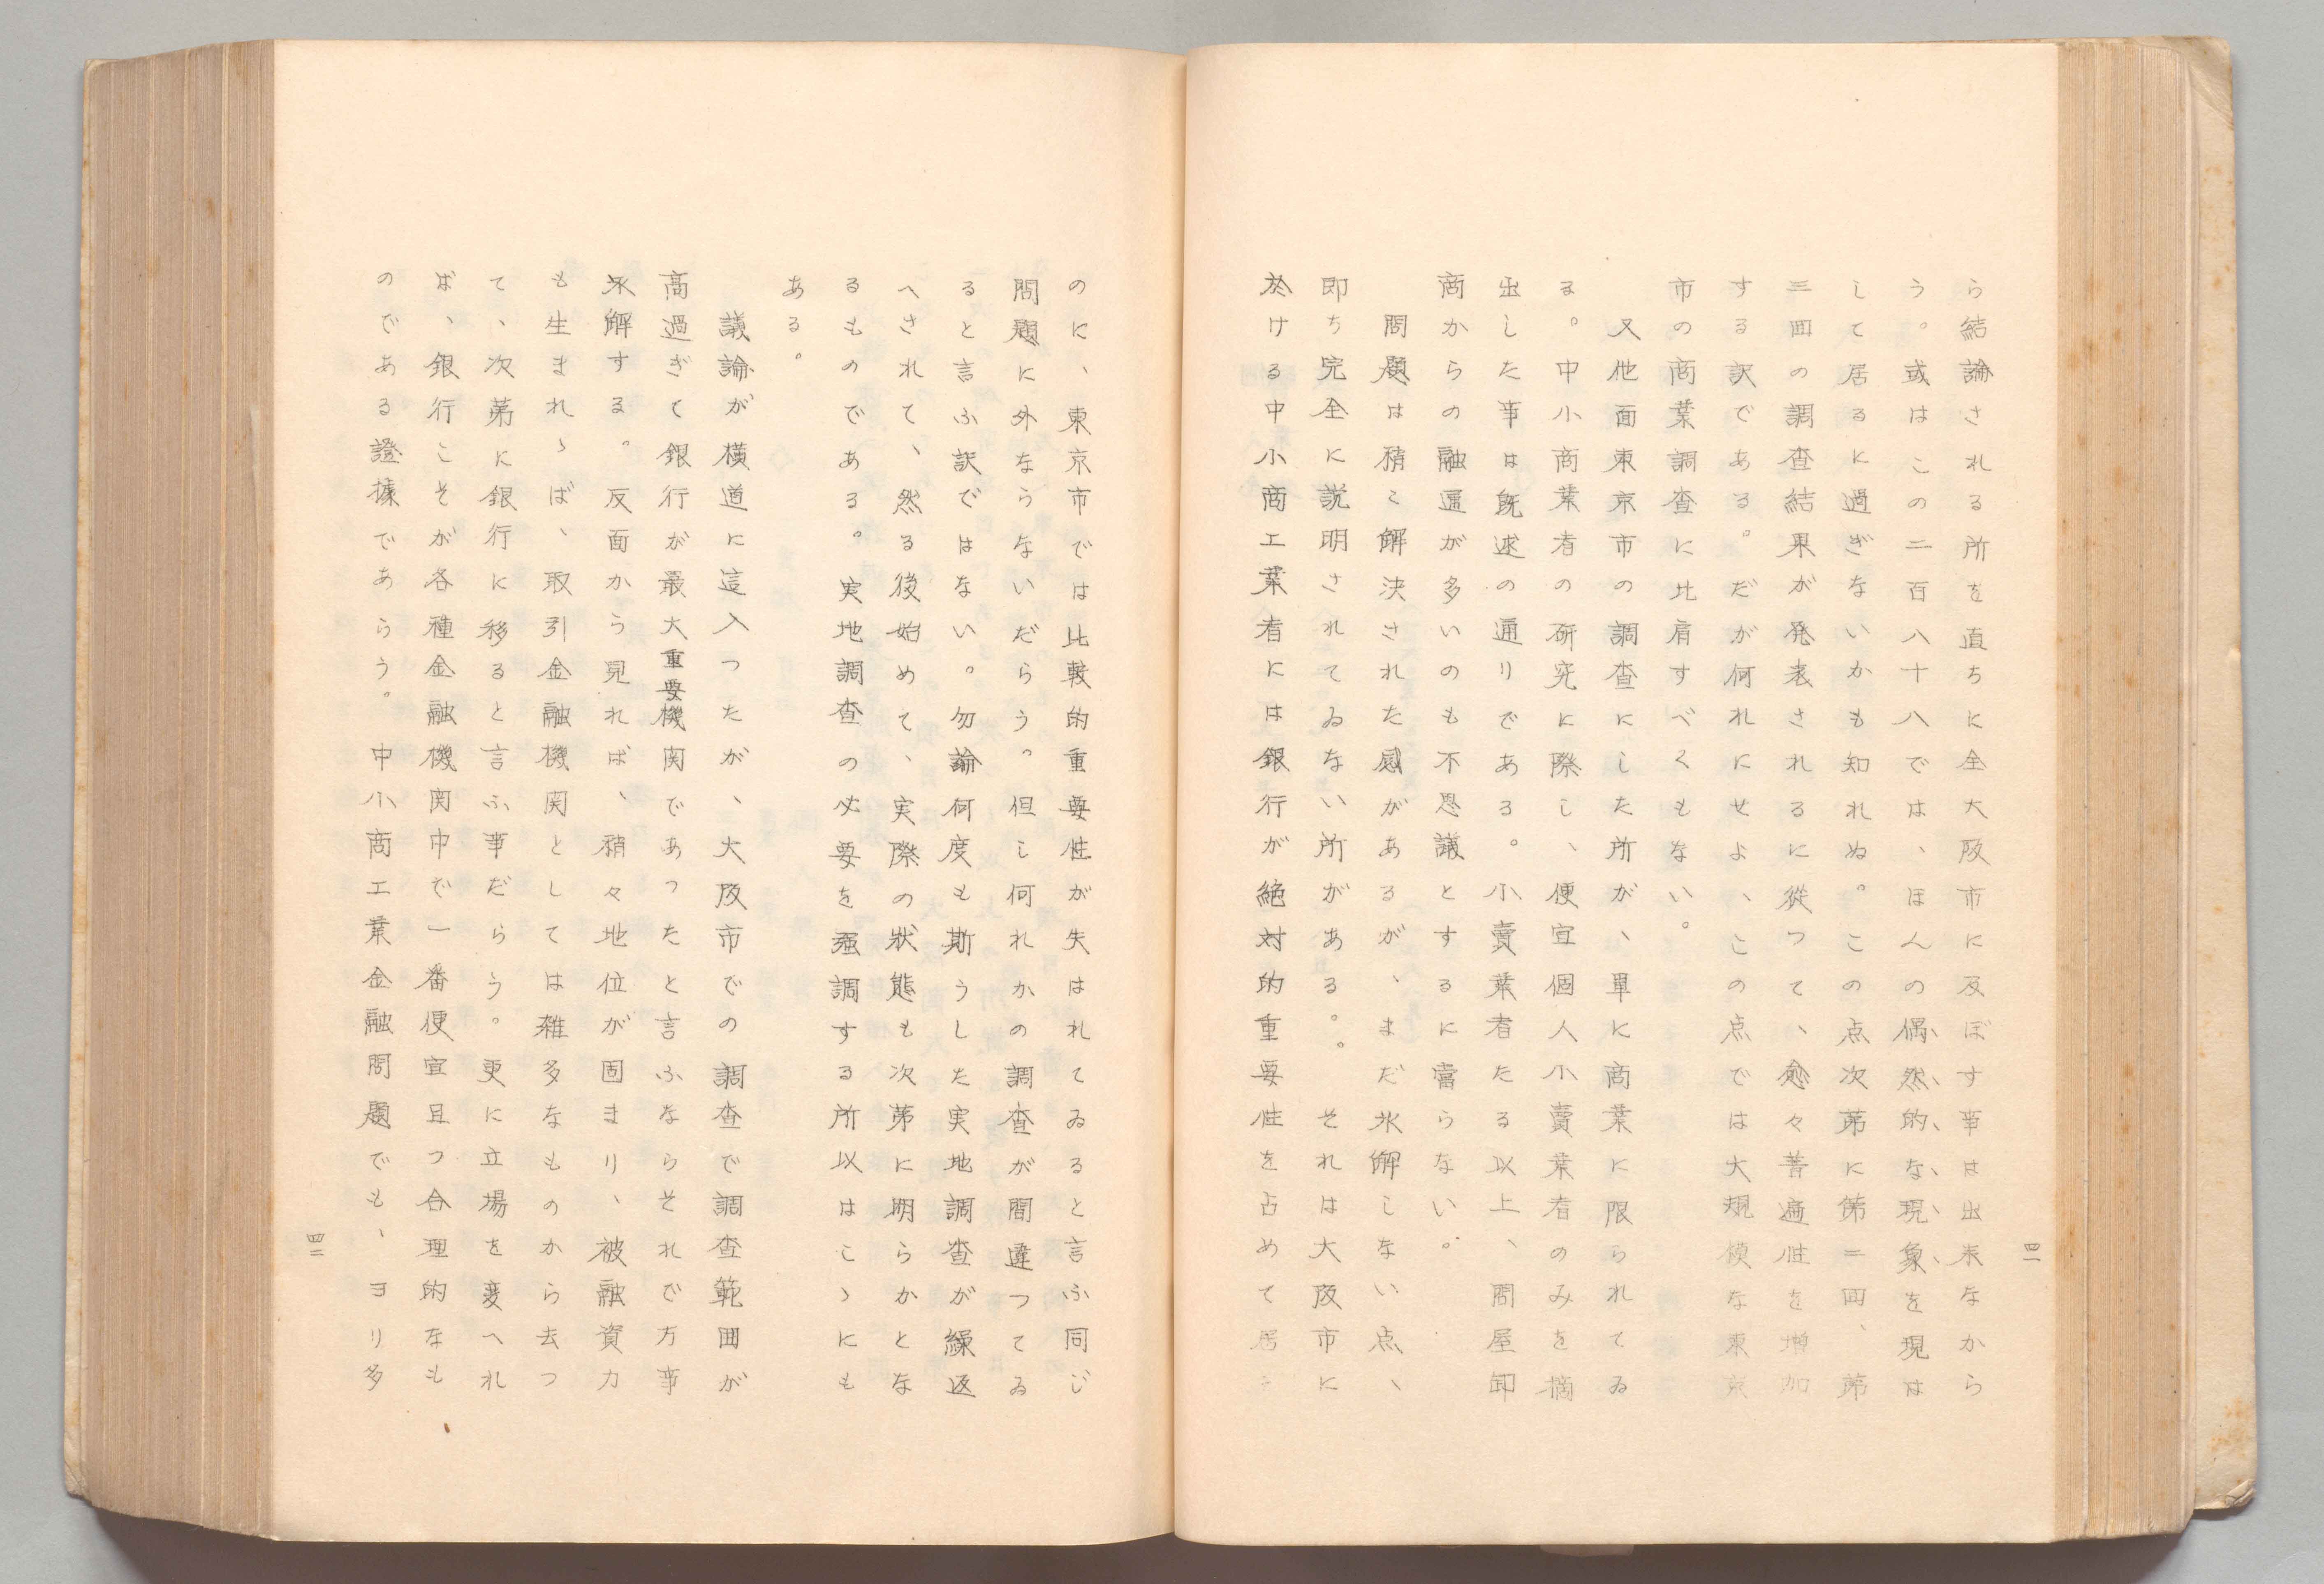 四一
ら結論される所を直ちに全大阪市に及ぼす事は出来なから
う。或はこの二百八十八では、ほんの偶然的な現象を現は
して居るに過ぎないかも知れぬ。この点次第に第二回、第
三回の調査結果が発表されるに従つて、愈々普遍性を増加
する訳である。だが何れにせよ、この点では大規模な東京
市の商業調査に比肩すべくもない。
又他面東京市の調査にした所が、単に商業に限られてゐ
る。中小商業者の研究に際し、便宜個人小賣業者のみを摘
出した事は既述の通りである。小賣業者たる以上、問屋卸
商からの融通が多いのも不思議とするに當らない。
問題は稍々解決された感があるが、まだ氷解しない点、
即ち完全に説明されてゐない所がある。。それは大阪市に
於ける中小商工業者には銀行が絶対的重要性を占めて居
のに、東京市では比較的重要性が失はれてゐると言ふ同じ
問題に外ならないだらう。但し何れかの調査が間違つてゐ
ると言ふ訳ではない。勿論何度も斯うした実地調査が繰返
へされて、然る後始めて、実際の状態も次第に明らかとな
るものである。実地調査の必要を强調する所以はこゝにも
ある。
議論が横道に這入つたが、大阪市での調査で調査範囲が
高過ぎて銀行が最大重要機関であつたと言ふならそれで万事
氷解する。反面から見れば、稍々地位が固まり、被融資力
も生まれゝば、取引金融機関としては雑多なものから去つ
て、次第に銀行に移ると言ふ事だらう。更に立場を変へれ
ば、銀行こそが各種金融機関中で一番便宜且つ合理的なも
のである證據であらう。中小商工業金融問題でも、ヨリ多
四二